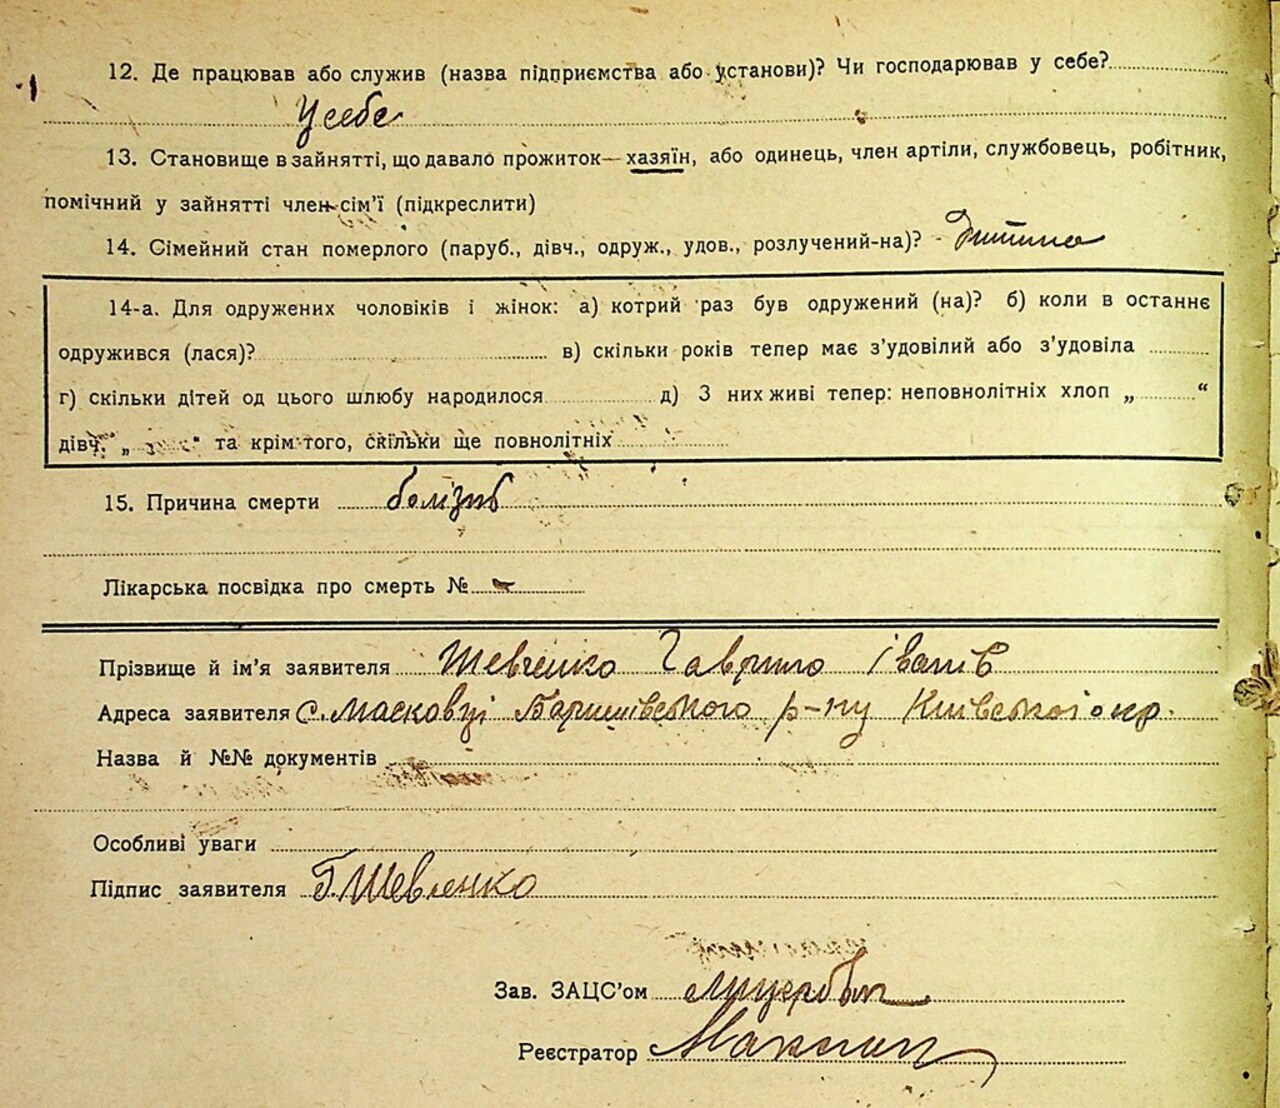 12. Де працював або служив (назва підприємства або установи)? Чи господарював у себе?
У себе
13. Становище в зайнятті, що давало прожиток— хазяїн, або одинець, член артіли, службовець, робітник,
помічний у зайнятті член сім'ї (підкреслити)
14. Сімейний стан померлого (паруб., дівч., одруж., удов., розлучений-на)? - Дитина
14-а. Для одружених чоловіків і жінок: а) котрий раз був одружений (на)? б) коли в останнє
одружився (лася)? в) скільки років тепер має з'удовілий або з'удовіла
г) скільки дітей од цього шлюбу народилося д) З них живі тепер: неповнолітніх хлоп „ “
дівч. „ “ та крім того, скільки ще повнолітніх
15. Причина смерти
Лікарська посвідка про смерть № -
Прізвище й ім'я заявителя Шевченко Гаврило Іванів
Адреса заявителя с. Масковці Баришівського р-ну Київської окр.
Назва й №№ документів
Особливі уваги
Підпис заявителя Г. Шевченко
Зав. ЗАЦС'ом
Реєстратор